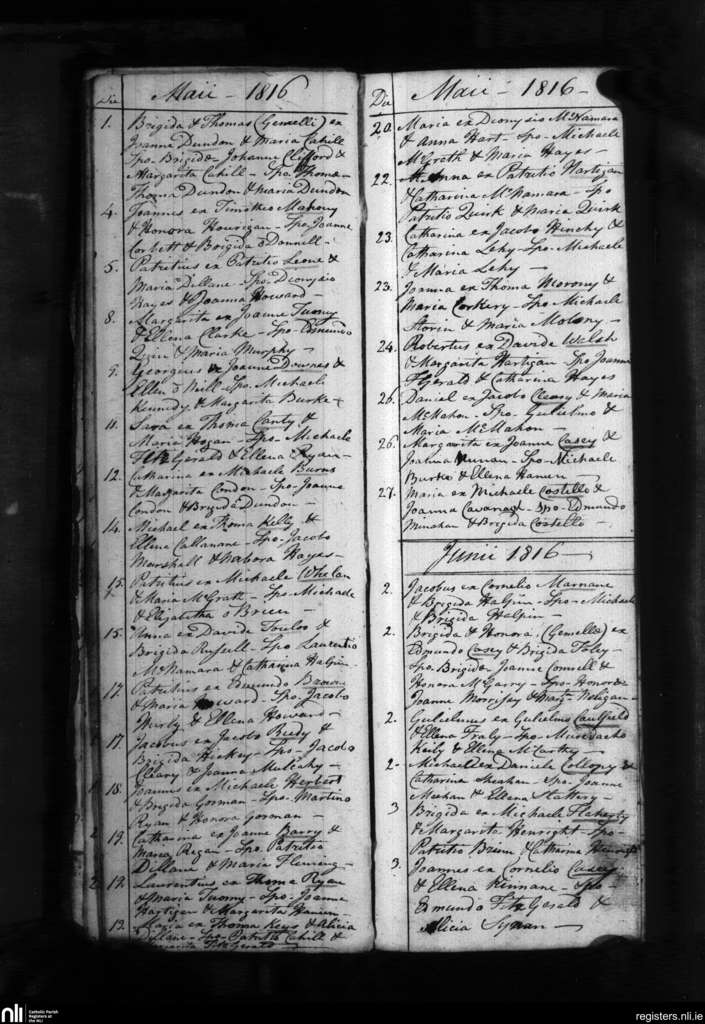 Die Maii - 1816
1. Brigida & Thomas (Gemelli) ex
Joanne Dundon & Maria Cahill
Spo. Brigidæ Johanne Clifford &
Margarita Cahill - Spo. Thomæ -
Thoma Dundon & Maria Dundon
4. Joannes ex Timotheo Mahony
& Honora Hourigan - Spo. Joanne
Corbett & Brigida O Donnell -
5. Patritius ex Patritio Leone &
Maria Dillane - Spo. Dionysio
Hayes & Joanna Howard -
8. Margarita ex Joanne Tuomy
& Ellena Clarke - Spo - Edmundo
Quin & Maria Murphy -
9. Georgius ex Joanne Downes &
Ellen O Neill - Spo. Michaele
Kennedy & Margarita Burke +
11. Sara ex Thoma Canty &
Maria Hogan - Spo. Michaele
FitzGerald & Ellena Ryan -
12. Catharina ex Michaele Burns
& Margarita Condon - Spo - Joanne
Condon & Brigida Dundon -
14. Michael ex Thoma Kelly &
Ellena Callanane - Spo. Jacobo
Marshell & Honora Hayes -
15. Patritius ex Michaele Whelan
& Maria McGrath - Spo. Michaele
& Elizabetha O Brien -
15. Anna ex Davide &
Brigida Russell - Spo Laurentio
McNamara & Catharina Halpin -
17. Patritius ex Edmundo Brown
& Maria Howard - Spo. Jacobo
Hurly & Ellena Howard -
17. Jacobus ex Jacobo Reidy &
Brigida Hickey - Spo - Jacobo
Cleary & Joanna Mulcahy -
18. Joannes ex Michaele Herbert
& Brigida Gorman - Spo. Martino
Ryan & Honora Gorman -
19. Catharina ex Joanne Barry &
Maria Regan - Spo. Patritio
Dillane & Maria Fleming -
19. Laurentius ex Thoma Ryan
& Maria Tuomy - Spo - Joanne
Hartigan & Margarita
19. Maria ex Thoma Keys & Alicia
Dillane - Spo - Patritio Cahill &
FitzGerald -
Die Maii - 1816 -
20. Maria ex Dionysio McNamara
& Anna Hart - Spo - Michaele
McGrath & Maria Hayes -
22. Anna ex Patritio Hartigan
& Catharina McNamara - Spo
Patritio Quirk & Maria Quirk
23. Catharina ex Jacobo Hinchy &
Catharina Lehy - Spo - Michaele
& Maria Lehy -
23. Joanna ex Thoma Morony &
Maria Corkery - Spo Michaele
Storin & Maria Molony -
24. Robertus ex Davide Welsh
& Margarita Hartigan - Spo Joanne
FGerald & Catharina Hayes
26. Daniel ex Jacobo Cleary & Maria
McMahon - Spo. Gulielmo &
Maria McMahon -
26. Margarita ex Joanne Casey &
Joanna - Spo - Michaele
Burke & Ellena
27. Maria ex Michaele Costello &
Joanna Cavanagh - Spo - Edmundo
Minahan & Brigida Costello -
Junii 1816 -
2. Jacobus ex Cornelio Marnane
& Brigida Halpin - Spo - Michaele
& Brigida Halpin
2. Brigida & Honora (Gemellæ) ex
Edmundo Casey & Brigida Foley -
Spo. Brigidæ Joanne Connell &
Honora McGarry - Spo - Honoræ
Joanne Morrissey & Marg.
2. Gulielmus ex Gulielmo Caulfield
& Ellena Fraly - Spo - Muredacho
Keily & Ellena McCarthy -
2. Michael ex Daniele Collopy &
Catharina Sheahan - Spo. Joanne
Meehan & Ellena Slattery -
3 Brigida ex Michaele Flaherty
& Margarita Henright - Spo -
Patritio Brien & Catharina Henright
3. Joannes ex Cornelio Casey
& Ellena Kinnane - Spo -
Edmundo FitzGerald &
Alicia Synan -
nli Catholic Parish
Registers at
the NLI
registers.nli.ie